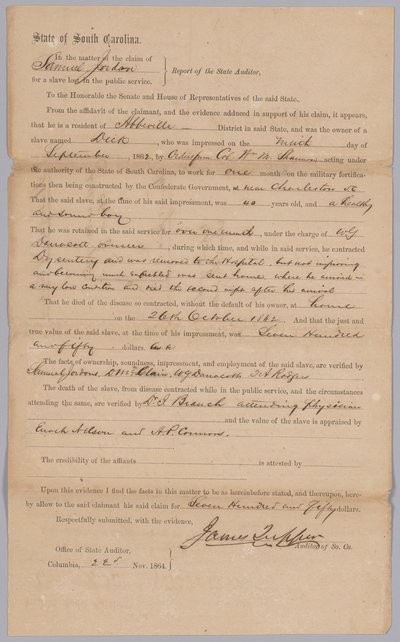 State of South Carolina.
In the matter of the claim of
Samuel Jordon
for a slave lost in the public service.
Report of the State Auditor,
To the Honorable the Senate and House of Representatives of the said State.
From the affidavit of the claimant, and the evidence adduced in support of his claim, it appears,
that he is a resident of Abbeville District in said State, and was the owner of a
slave named Dick, who was impressed on the day of
September 1862, by Col. Wm M. Shannon acting under
the authority of the State of South Carolina, to work for one month on the military fortifica-
tions then being constructed by the Confederate Government, at near Charleston So Ca
That the said slave, at the time of his said impressment, was 40 years old, and a healthy
and sound boy
That he was retained in the said service for over one month, under the charge of W G
, during which time, and while in said service, he contracted
Dysentery and was removed to the Hospital, but not improving
and becoming much enfeebled was sent home where he arrived in
a very low condition and died the second night after his arrival
That he died of the disease so contracted, without the default of his owner, at home
on the 26th October 1862. And that the just and
true value of the said slave, at the time of his impressment, was Seven Hundred
and fifty dollars
The facts of ownership, soundness, impressment, and employment of the said slave, are verified by
Samuel Jordons, D McClain, W G
The death of the slave, from disease contracted while in the public service, and the circumstances
attending the same, are verified by Dr I Branch attending physician
and the value of the slave is appraised by
Enoch Nelson and A. P. Connors.
The credibility of the affiants is attested by
Upon this evidence I find the facts in this matter to be as hereinbefore stated, and thereupon, here-
by allow to the said claimant his said claim for Seven Hundred and fifty dollars.
Respectfully submitted, with the evidence,
James Tupper
Auditor of So. Ca.
Office of State Auditor,
Columbia, 22d Nov. 1864.